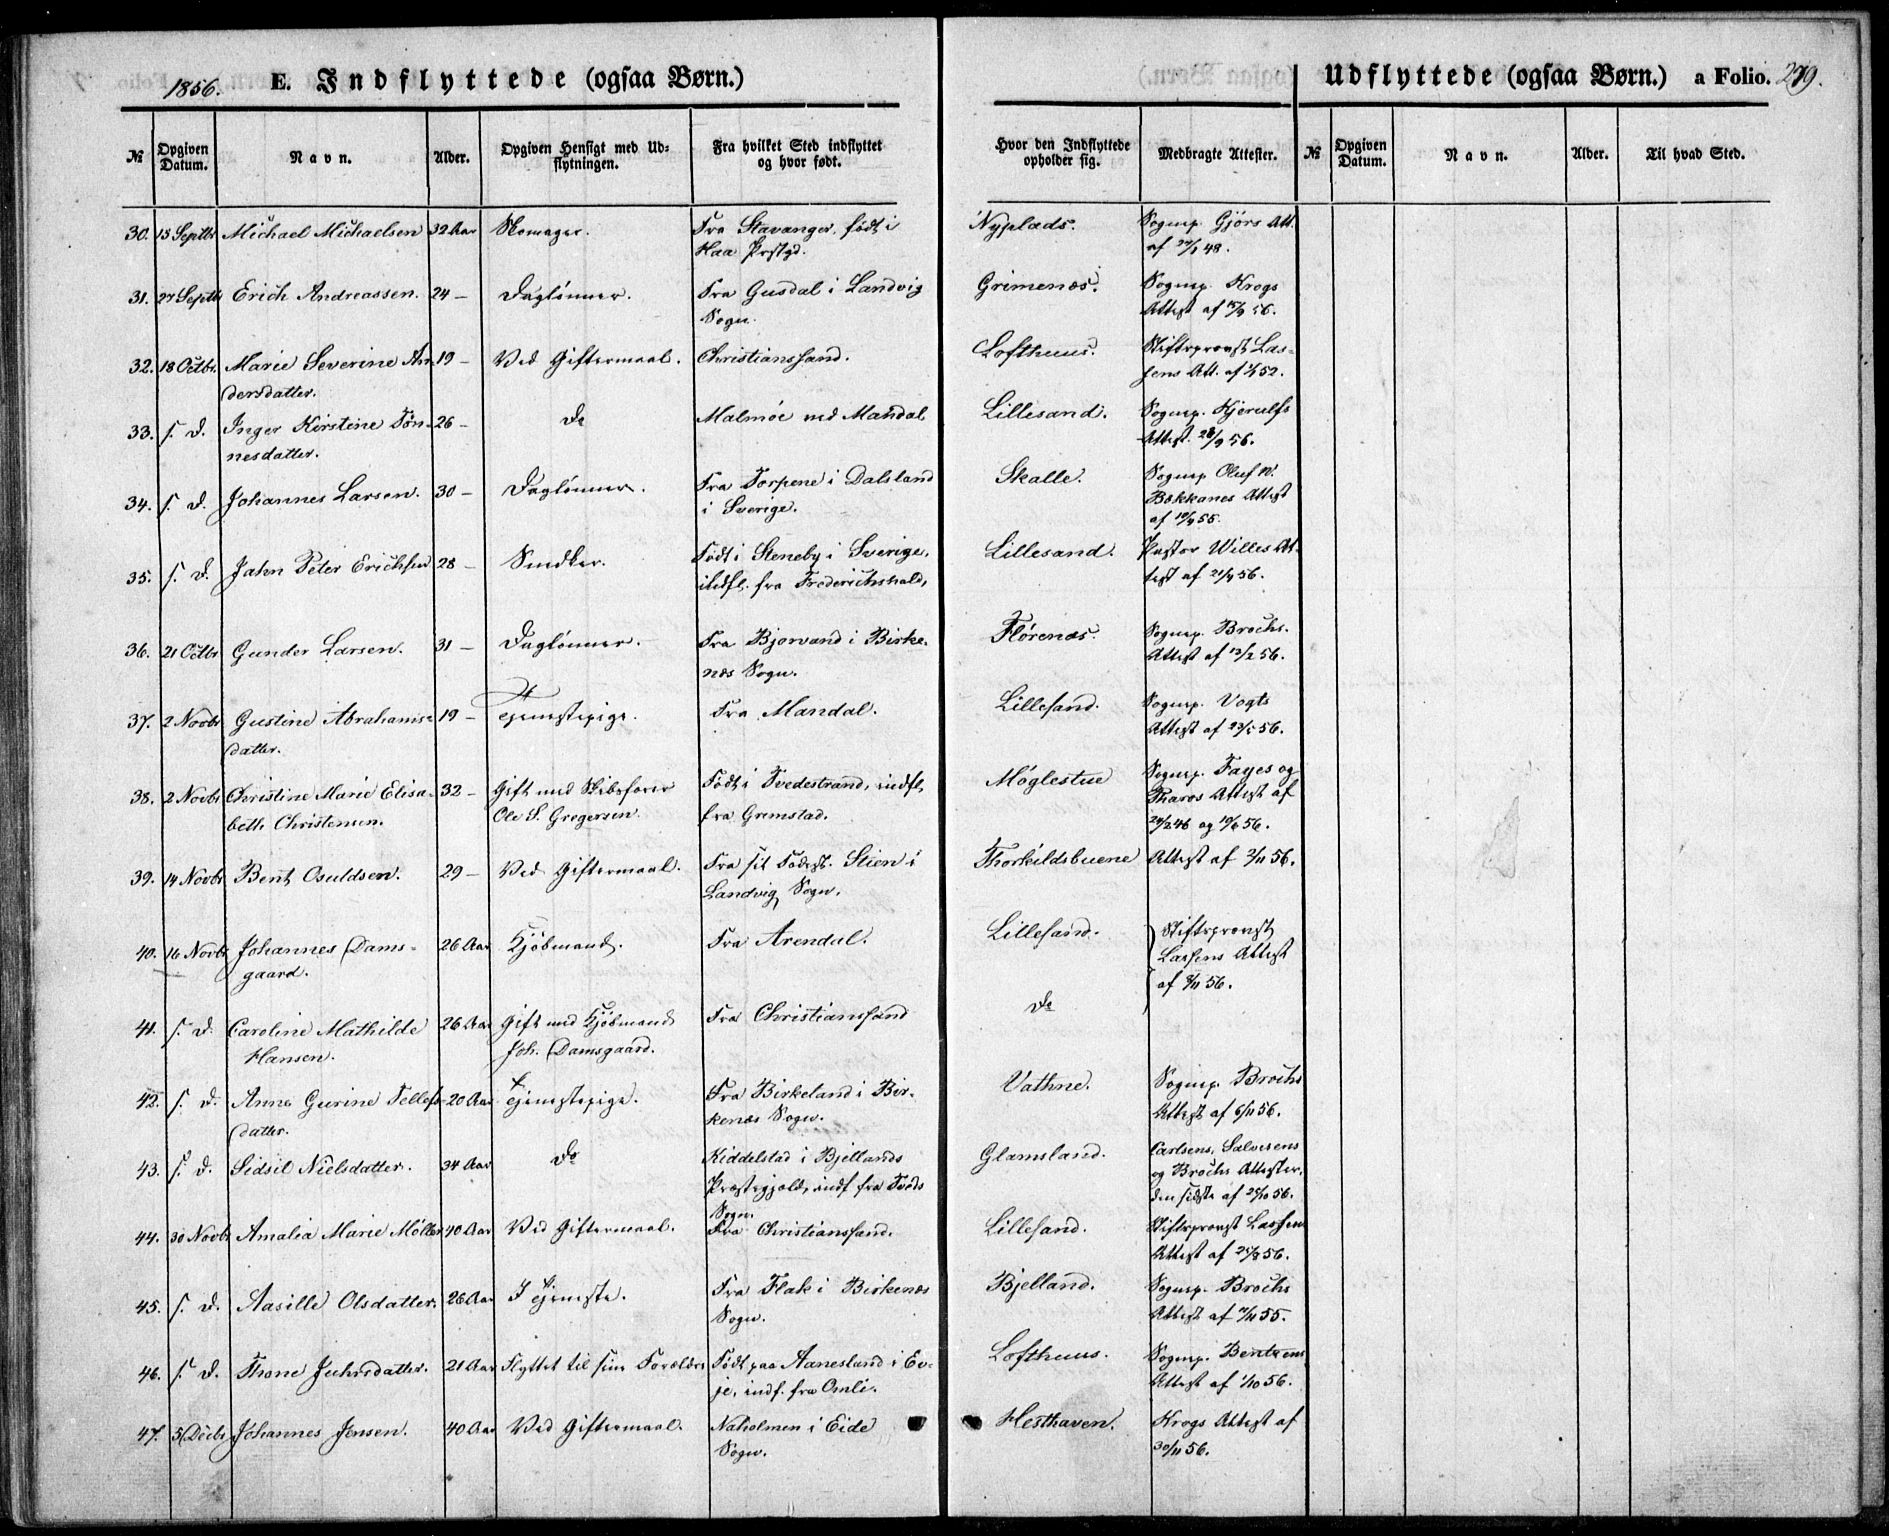 1856. E. Indflyttede (ogsaa Børn.)
№ Opgiven Datum. Navn. Alder. Opgiven Hensigt med Ud=flytningen. Fra hvilket Sted indflyttet og hvor født.
Hvor den Indflyttede opholder sig. Medbragte Attester.
Udflyttede (ogsaa Børn.) a Folio. 279.
№ Opgiven Datum. Navn. Alder. Til hvad Sted.
30. 15 Septbr Michael Michaelsen 32 Aar Skomager. Fra Stavanger, født i Nyplads. Sognep. Gjörs Att.
Haa Prstgd. af 24/7 48.
31. 27 Septbr Erich Andreassen. 24 – Daglönner. Fra Gusdal i Landvig Grimenæs. Sognep. Krogs
Sogn. Attest af 15/9 56.
32. 18 Octbr. Marie Severine An- 19 – Ved Giftermaal. Christianssand. Lofthuus. Stiftsprovst Las-
dersdatter. sens Att. af 52.
33. s. D. Inger Kirstine Tön- 26 – Do Malmöe ved Mandal Lillesand. Sognep. Kjerulfs
nesdatter. Attest. 28/9 56.
34. s. D. Johannes Larsen. 30 – Daglönner. Fra Torpene i Dalsland Skalle. Sognep Oluf N.
i Sverige. Bakkanes Attest
af 55.
35. s. D. Jahn Peter Erichsen 28 – Snedker. Födt i Steneby i Sverige, Lillesand. Pastor Willes At-
indfl. fra Frederichshald, test af 21/9 56.
36. 21 Octbr Gunder Larsen. 31 – Daglönner. Fra Bjorvand i Birke- Flörenæs. Sognep. Brochs.
næs Sogn. Attest af 13/2 56.
37. 2 Novbr Gustine Abrahams- 19 – Tjenestepige. Fra Mandal. Lillesand. Sognep. Vogts
datter. Attest af 23/5 56.
38. 2 Novbr Christine Marie Elisa- 32 – Gift med Skibsförer Födt i Tvedestrand, indfl. Möglestue Sognep. Fayes og
beth Christensen. Ole S. Gregersen. fra Grimstad. Tharos Attest af
24/2 46 og 19/6 56.
39. 14 Novbr Bent Osuldsen. 29 – Ved Giftermaal. Fra sit Födest. Stien i Thorkildsbuene Attest af 2/11 56.
Landvig Sogn.
40. 16 Novbr Johannes Dams- 26 Aar Kjöbmand. Fra Arendal. Lillesand. Stiftsprovst
gaard. Lassens Attest
af 8/11 56.
41. s. D. Caroline Mathilde 26 Aar Gift med Kjöbmand Fra Christianssand Do
Hansen. Joh. Damsgaard.
42. s. D. Anne Gurine Tellefs- 20 Aar Tjenestepige. Fra Birkeland i Bir- Vathne. Sognep. Brochs
datter. kenæs Sogn. Attest af 6/11 56.
43. s. D. Sidsil Nielsdatter. 34 Aar Do Kiddelstad i Bjellands Glamsland. Carlsens, Salvesens
Præstegjeld, indf fra Tveds og Brochs Attester,
Sogn. den sidste af 25/10 56.
44. 30 Novbr Amalia Marie Möller 40 Aar Ved Giftermaal. Fra Christianssand. Lillesand. Stiftsprovst Lassens
Attest af 25/8 56.
45. s. D. Aasille Olsdatter. 26 Aar I Tjeneste. Fra Flak i Birkenæs Bjelland. Sognep. Brochs
Sogn. Attest af 7/11 55.
46. s. D. Thone Juhrsdatter. 21 Aar Flyttet til sine Forældre Födt paa Aanesland i Ev- Lofthuus. Sognep. Bentzens
je, indf. fra Omli. Attest af 1/10 56.
47. 5 Decbr Johannes Jensen. 40 Aar Ved Giftermaal. Naholmen i Eide Hesthaven. Krogs Attest af
Sogn. 30/11 56.